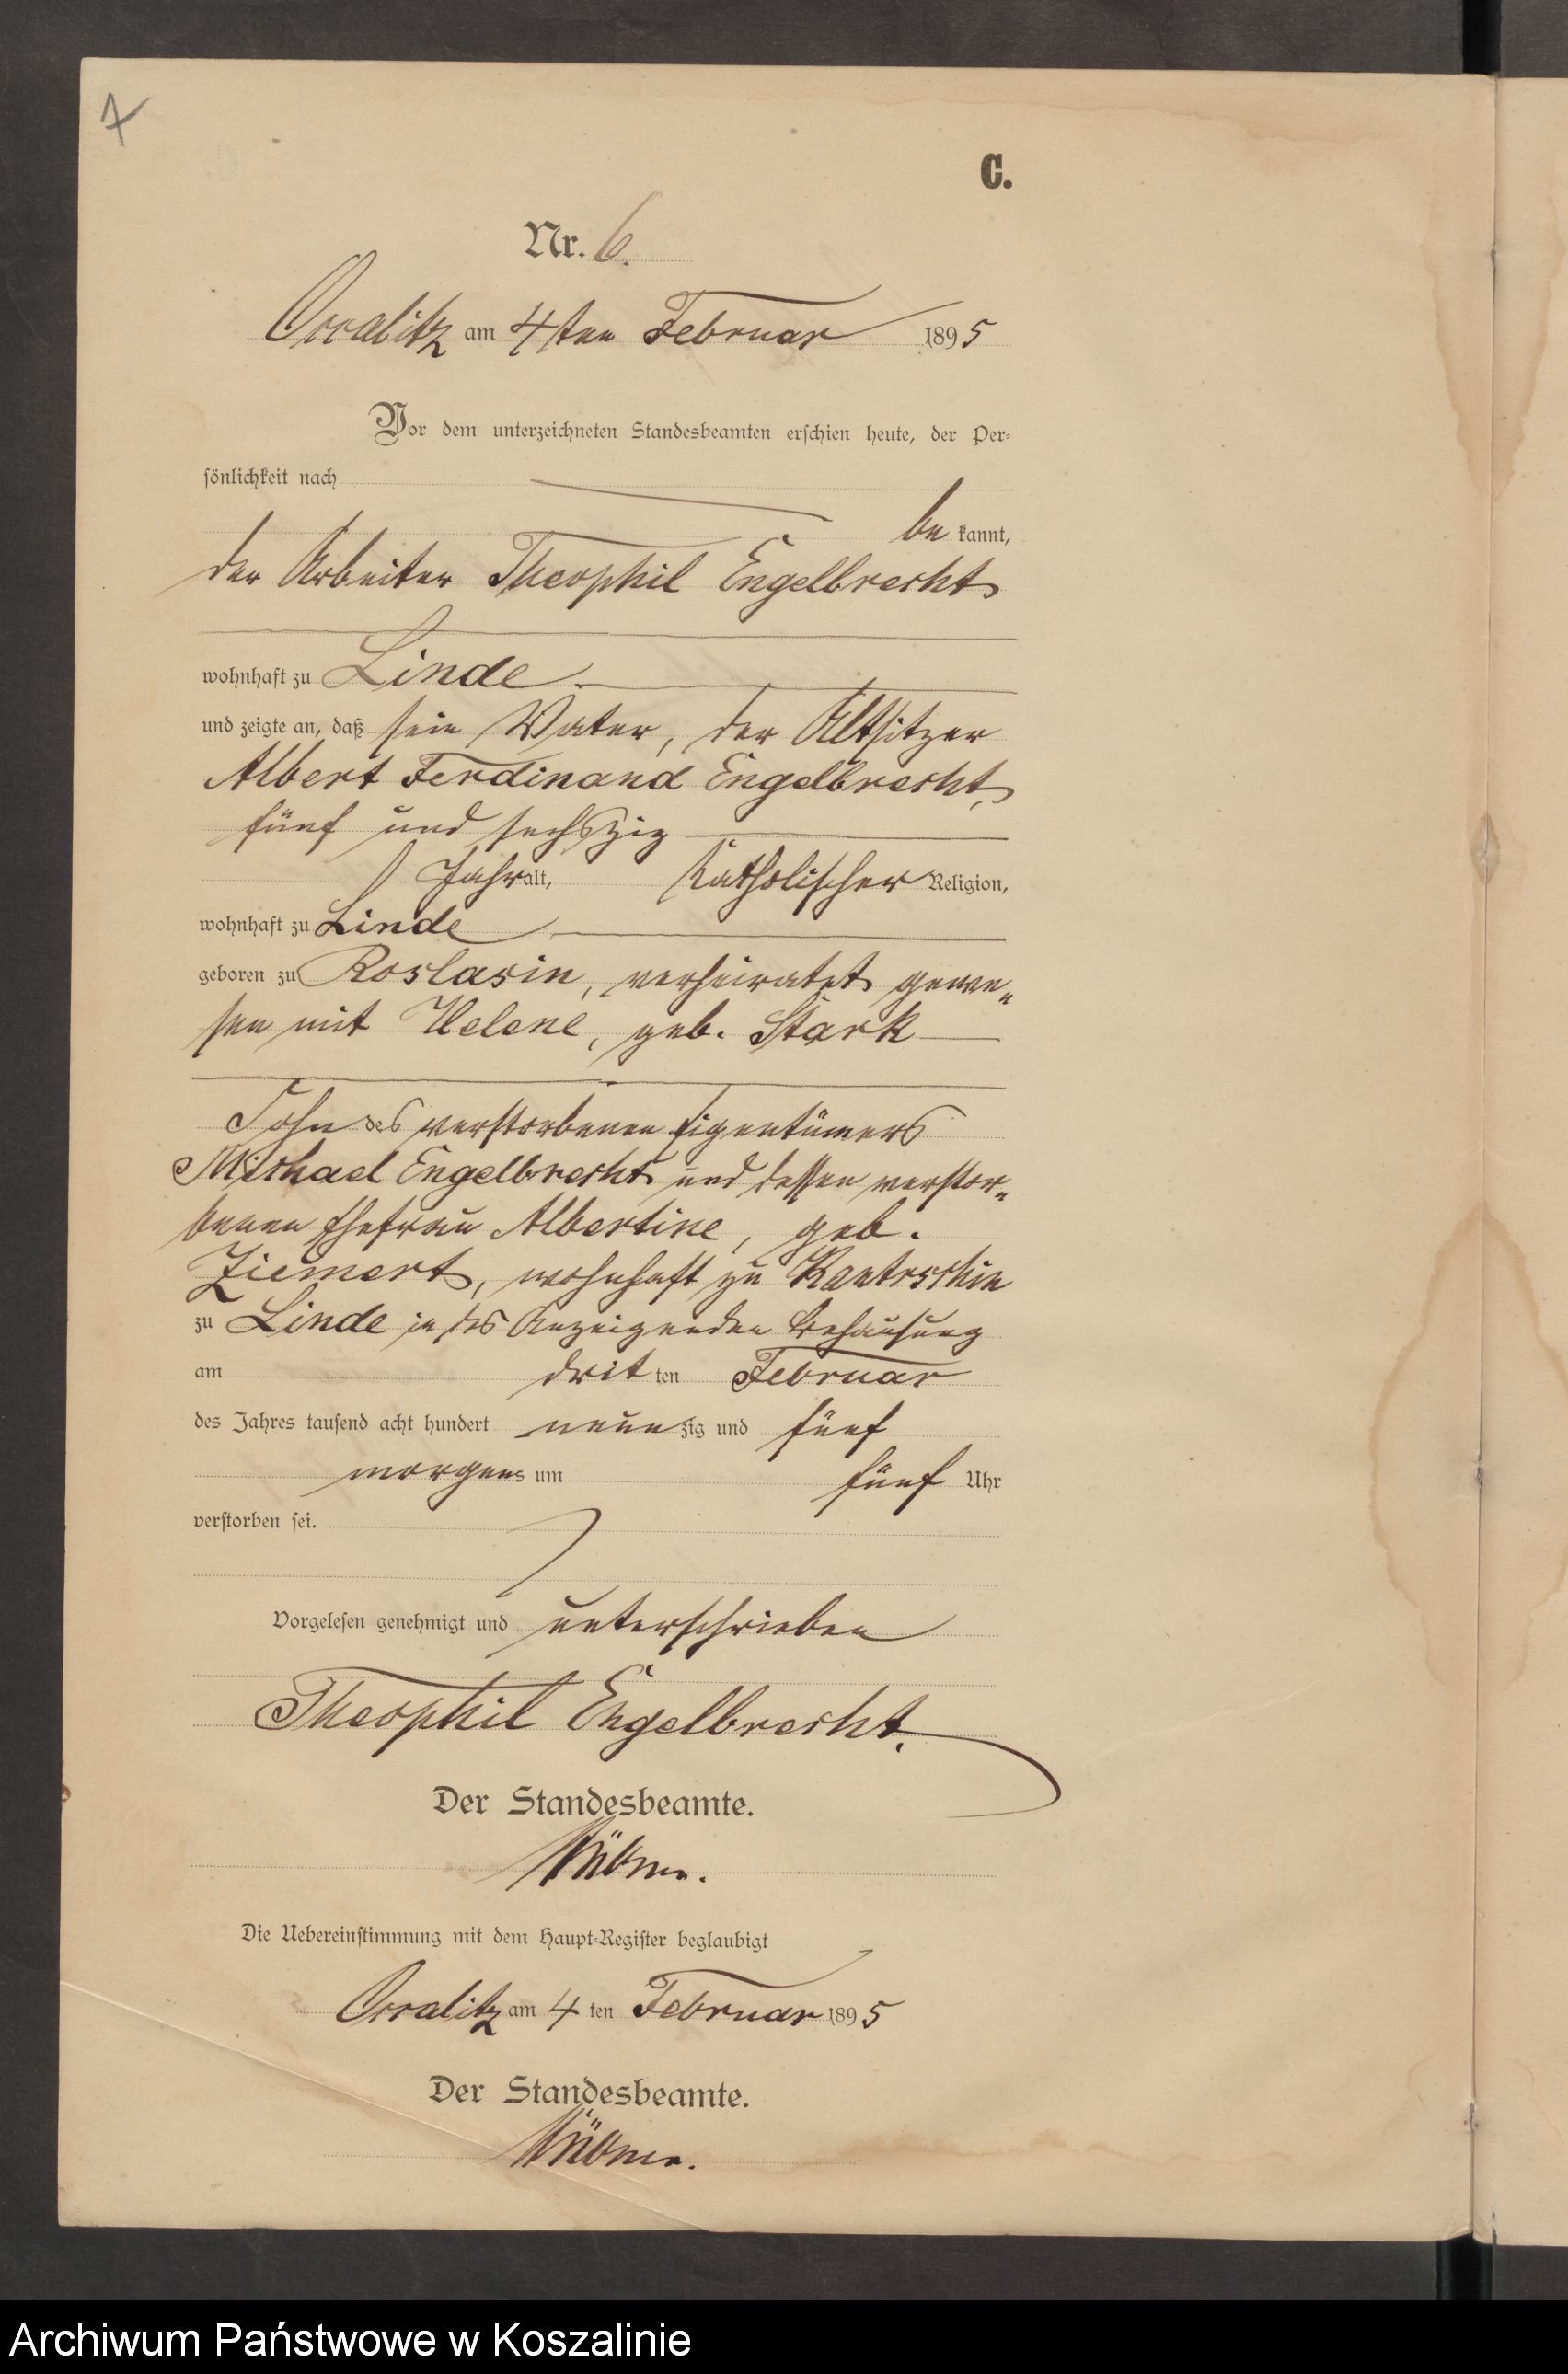 7
C.
Nr. 6.
Occalitz am 4ten Februar 1895
Vor dem unterzeichneten Standesbeamten erschien heute, der Per-
sönlichkeit nach
be kannt,
der Arbeiter Theophil Engelbrecht
wohnhaft zu Linde
und zeigte an, daß sein Vater, der Altsitzer
Albert Ferdinand Engelbrecht,
fünf und sechszig
Jahr alt, Katholischer Religion,
wohnhaft zu Linde
geboren zu Roslasin, verheiratet gewe-
sen mit Helene, geb. Stark
Sohn des verstorbenen Eigentümers
Michael Engelbrecht und dessen verstor-
benen Ehefrau Albertine, geb.
Ziemert, wohnhaft zu Kantrschin
zu Linde in des Anzeigenden Behausung
am drit ten Februar
des Jahres tausend acht hundert neun zig und fünf
morgens um fünf Uhr
verstorben sei.
Vorgelesen genehmigt und unterschrieben
Theophil Engelbrecht.
Der Standesbeamte.
Die Uebereinstimmung mit dem Haupt-Register beglaubigt
Occalitz am 4 ten Februar 1895
Der Standesbeamte.
Archiwum Państwowe w Koszalinie